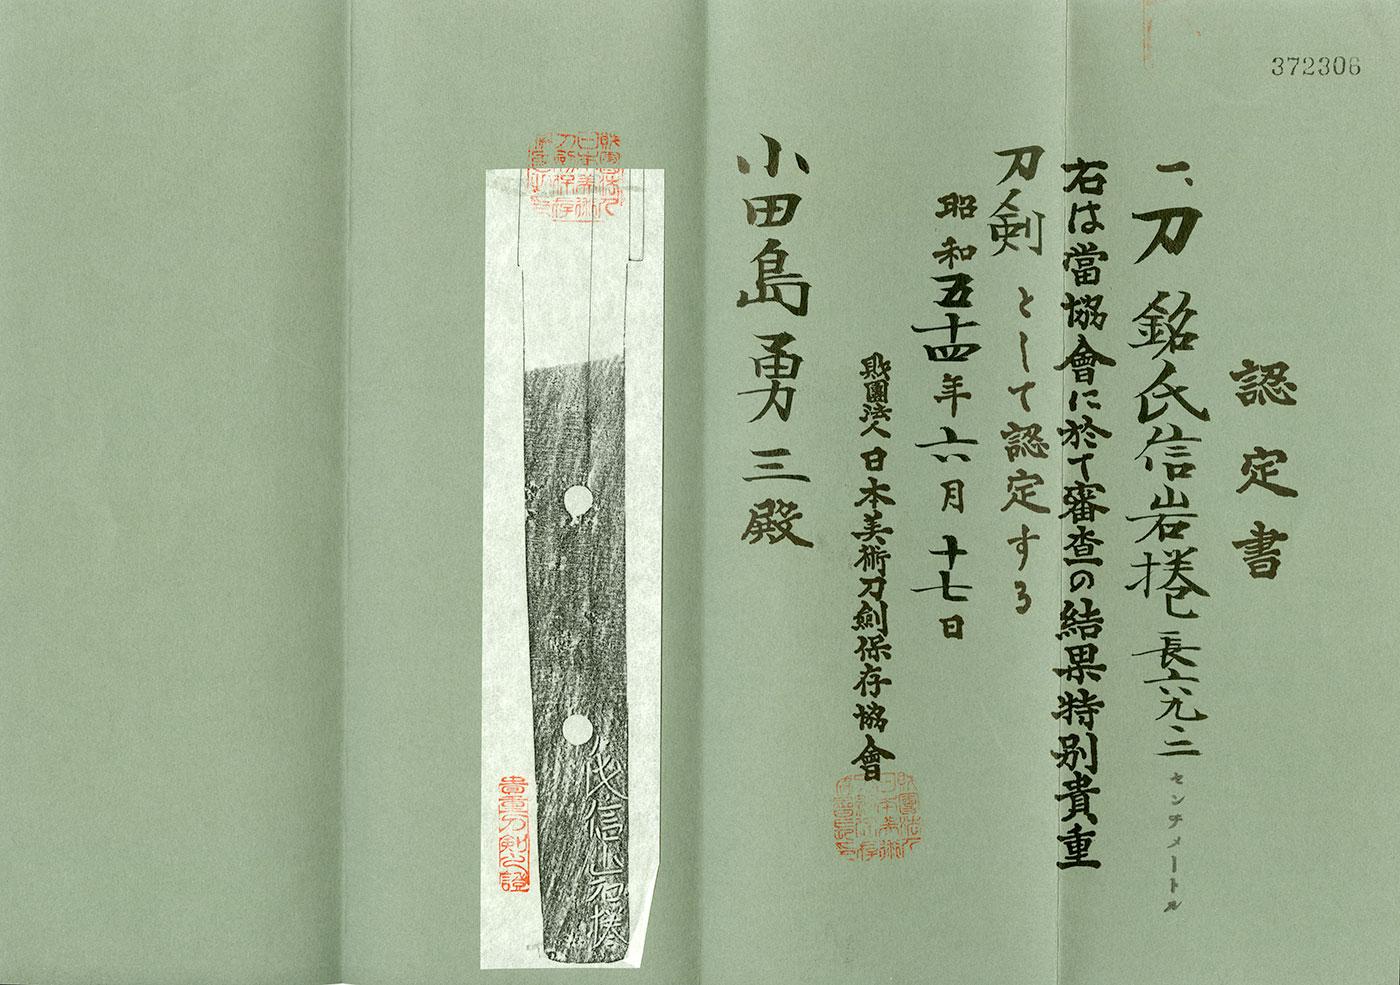 372306
認定書
一、刀 銘氏信岩捲 長六九、二センチメートル
右は當協會に於て審査の結果特別貴重
刀剣として認定する
昭和五十四年六月十七日
財團法人日本美術刀劍保存協會
小田島勇三殿
氏信岩捲
貴重刀剣之證